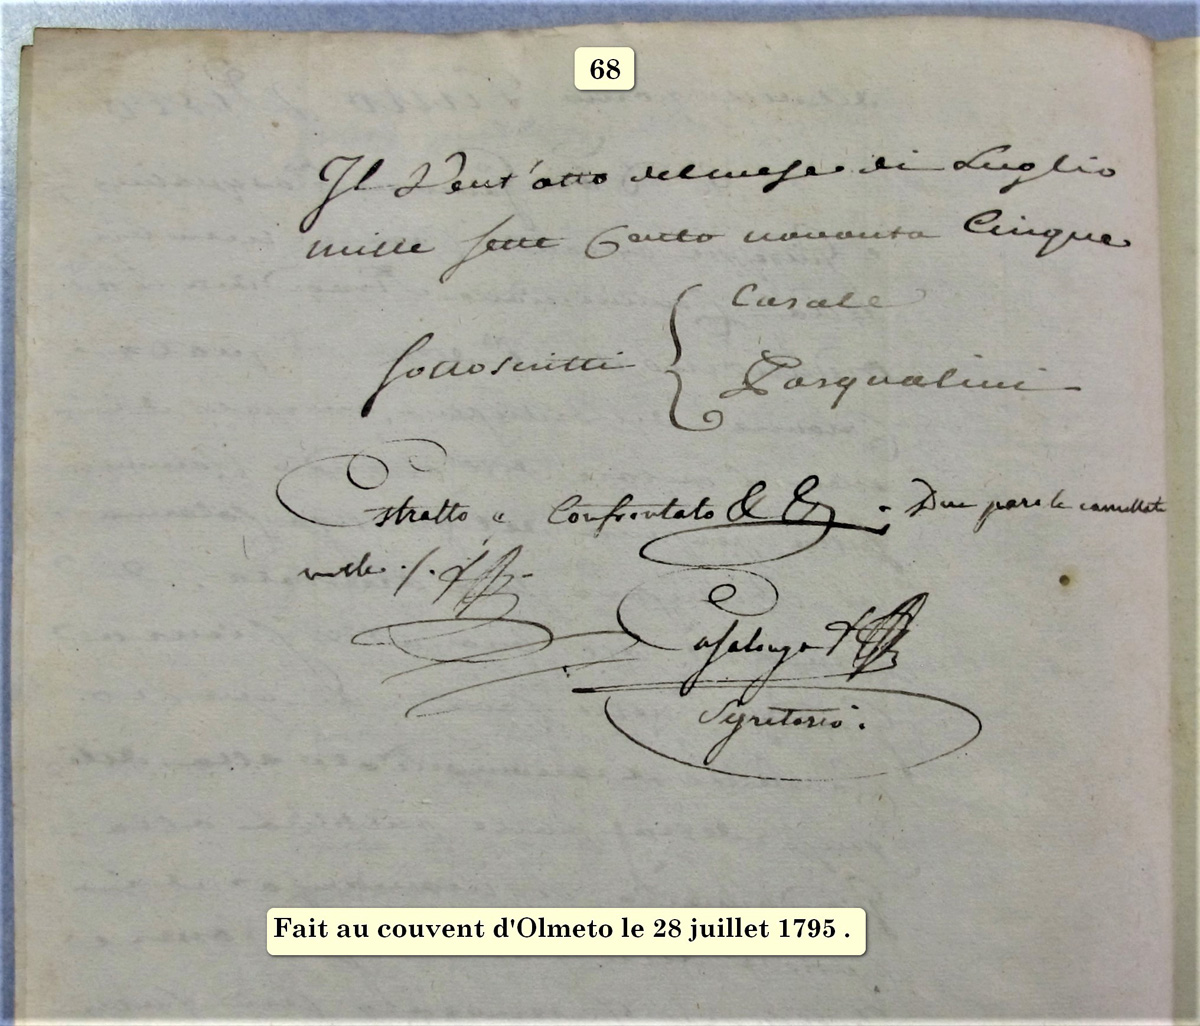 68
Il Vent'otto del mese di Luglio
mille sette Cento novanta Cinque
Casale
Sottoscritti
Pasqualini
Estratto e Confrontato & & . Due parole cancellate
nulle ./.
Casalonga
Segretario .
Fait au couvent d'Olmeto le 28 juillet 1795 .